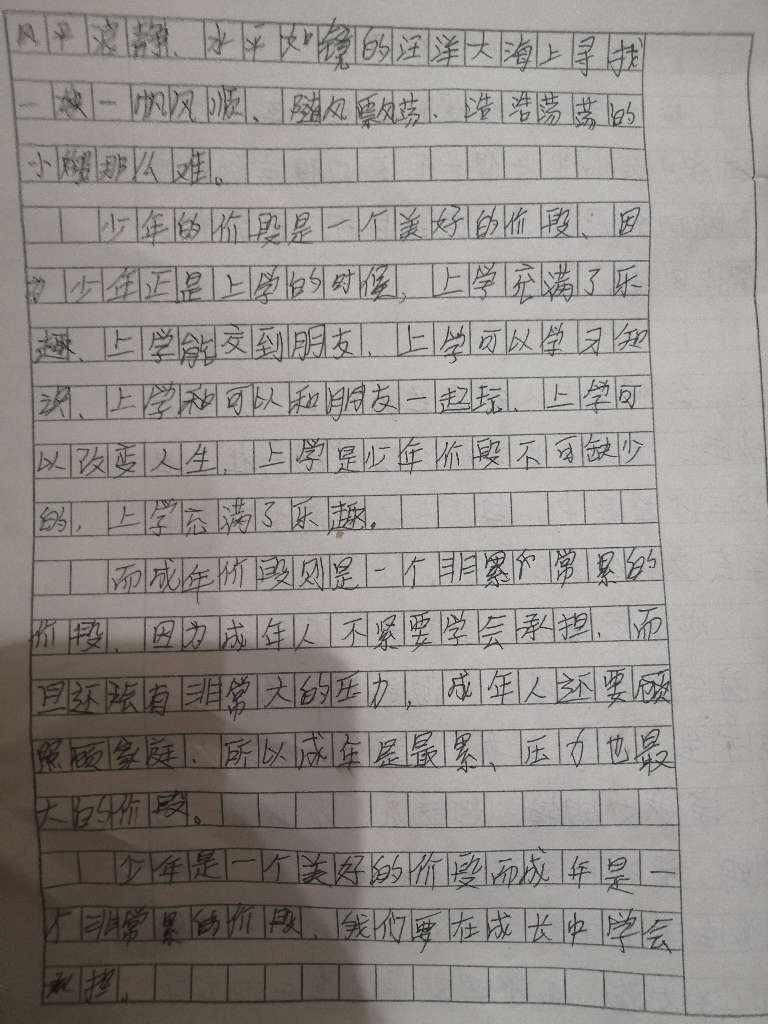 风平浪静、水平如镜的汪洋大海上寻找
一搜一帆风顺、随风飘荡、浩浩荡荡的
小艘那么难。
少年的价段是一个美好的价段、因
为少年正是上学的时候，上学充满了乐
趣、上学能交到朋友、上学可以学习知
识、上学和可以和朋友一起玩、上学可
以改变人生，上学是少年价段不可缺少
的，上学充满了乐趣。
而成年价段则是一个非常累的
价段、因为成年人不紧要学会承担、而
且还有非常大的压力，成年人还要
照顾家庭、所以成年是最累、压力也最
大的价段。
少年是一个美好的价段而成年是一
个非常累的价段、我们要在成长中学会
承担。